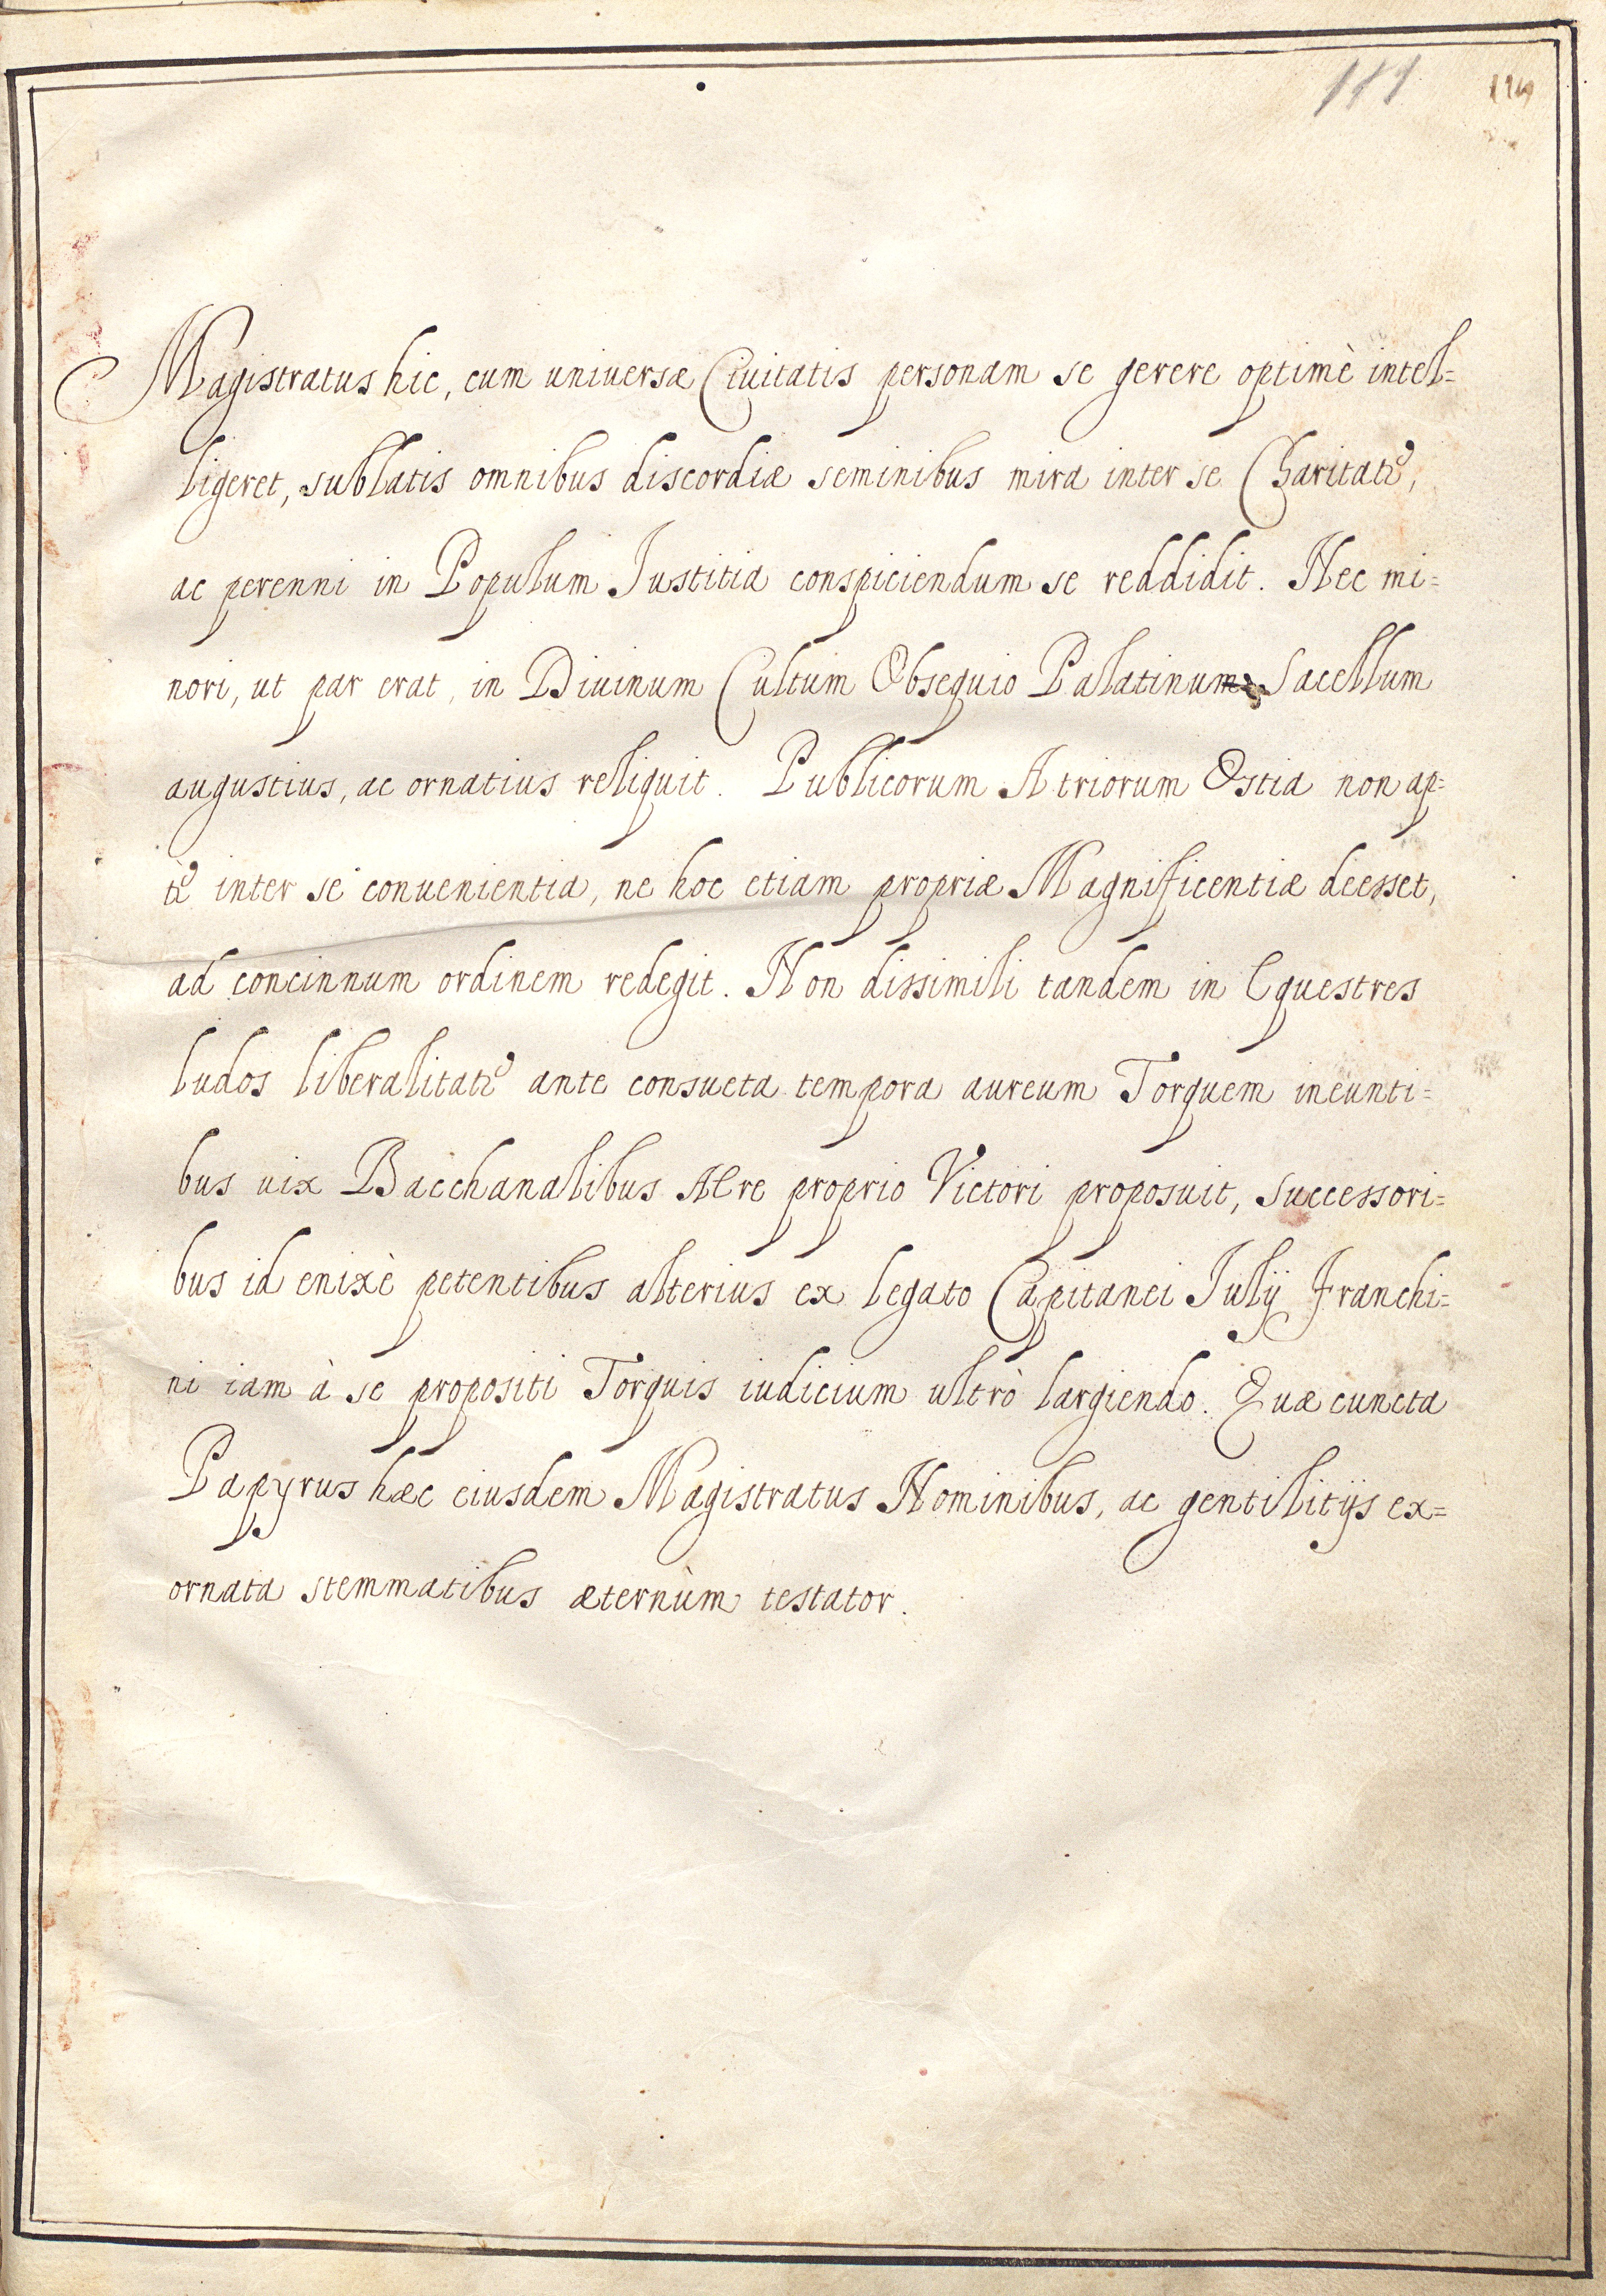 111
Magistratus hic, cum uniuersæ Ciuitatis personam se gerere optimè intel=
ligeret, sublatis omnibus discordiæ seminibus mira inter se Charitate,
ac perenni in Populum Iustitia conspiciendum se reddidit. Nec mi=
nori, ut par erat, in Diuinum Cultum Obsequio Palatinum Sacellum
augustius, ac ornatius reliquit. Publicorum Atriorum Ostia non ap=
tè inter se conuenientia, ne hoc etiam propriæ Magnificentiæ deesset,
ad concinnum ordinem redegit. Non dissimili tandem in Equestres
ludos liberalitate ante consueta tempora aureum Torquem ineunti=
bus uix Bacchanalibus Aere proprio Victori proposuit, successori=
bus id enixè petentibus alterius ex legato Capitanei Iulij Franchi=
ni iam à se propositi Torquis iudicium ultrò largiendo. Quæ cuncta
Papyrus hæc eiusdem Magistratus Nominibus, ac gentilitijs ex=
ornata stemmatibus æternùm testator.